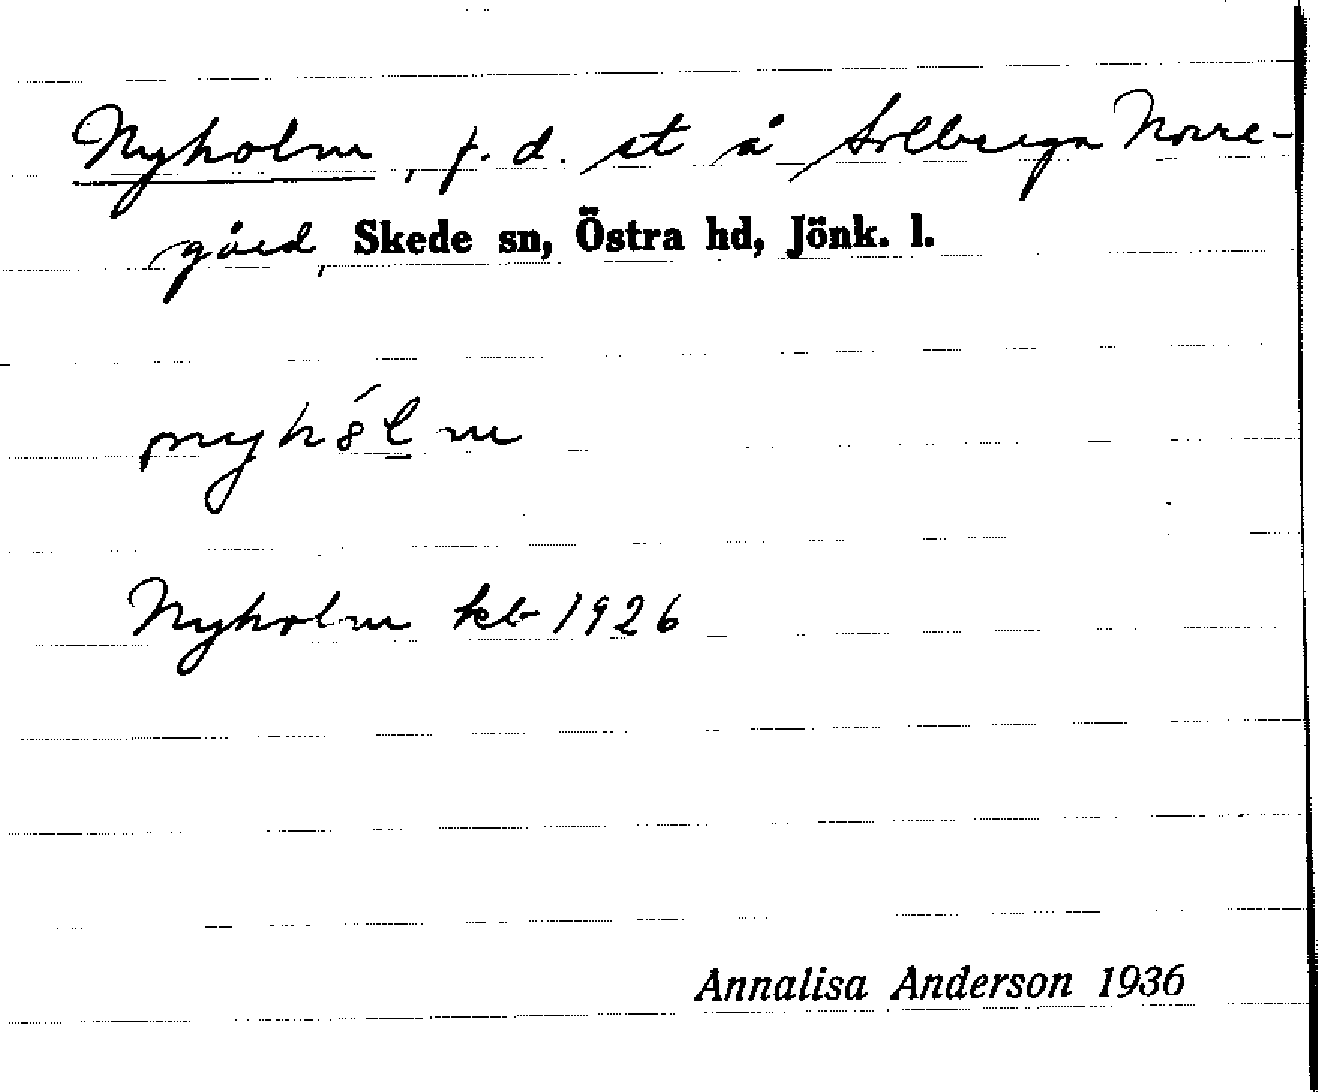 Nyholm, f. d. st å Solberga Norre-
gård, Skede sn, Östra hd, Jönk. l.
Nyholm kb 1926
Annalisa Anderson 1936